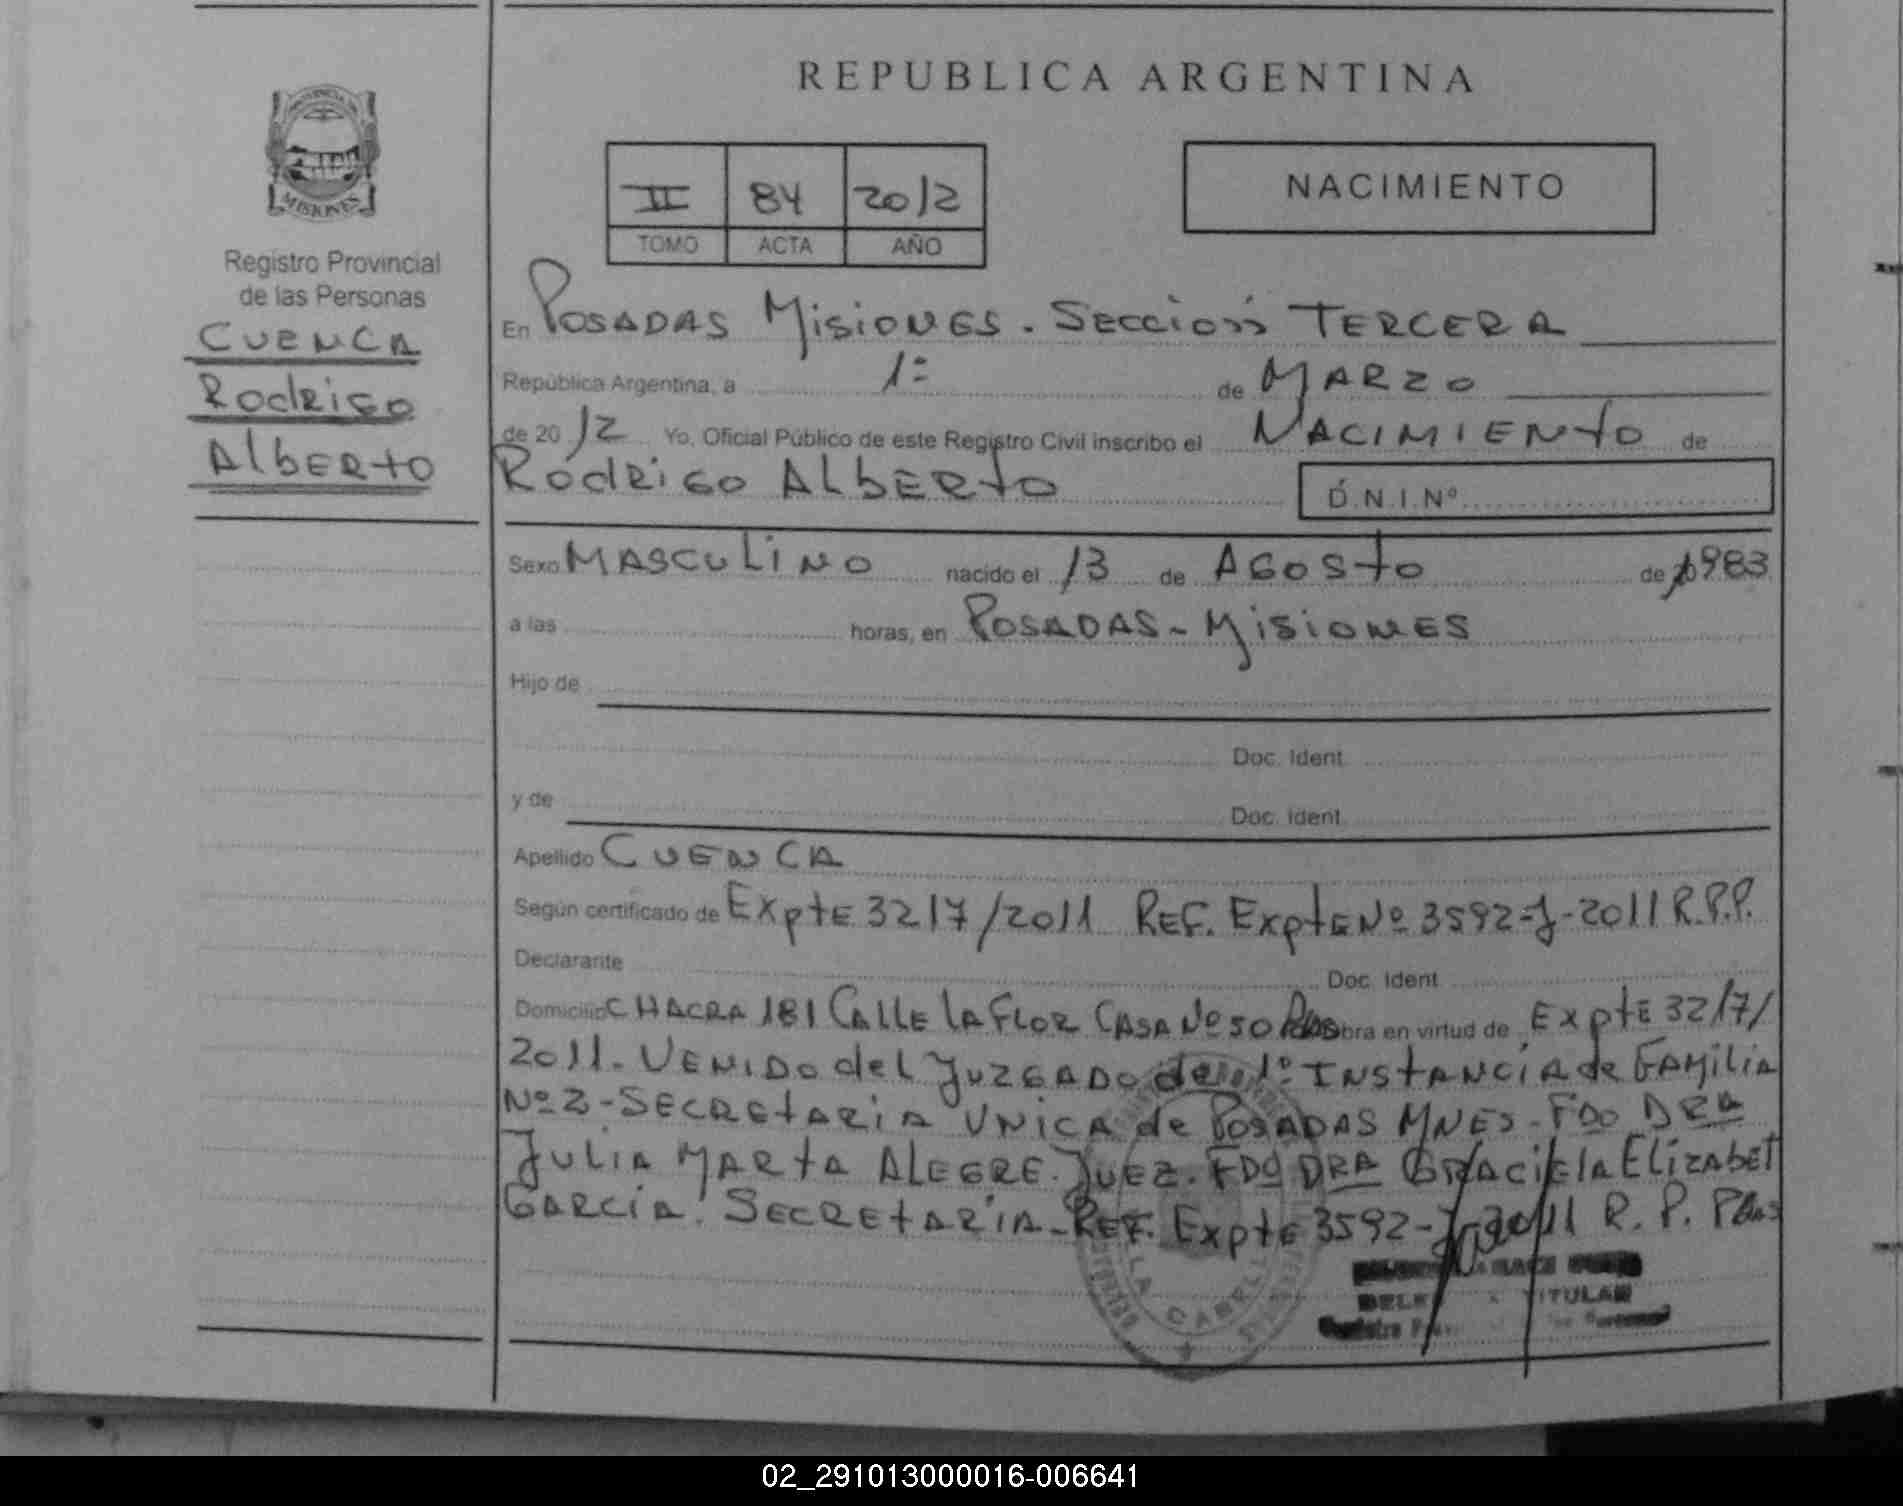 REPUBLICA ARGENTINA
PROVINCIA DE
MISIONES
II 84 2012
TOMO ACTA AÑO
NACIMIENTO
Registro Provincial
de las Personas
CUENCA
Rodrigo
Alberto
En POSADAS MisiONES. SECCiÓN TERCERA
República Argentina, a 1º de MARZO
de 2012 Yo, Oficial Público de este Registro Civil inscribo el NACIMIENTO de
RodRiGO ALBERTO
D.N.I.Nº
Sexo MASCULiNO nacido el 13 de AGOSTO de 1983
a las horas, en POSADAS - MisiONES
Hijo de
Doc. Ident.
y de
Doc. Ident.
Apellido CUENCA
Según certificado de EXPTE 3217/2011 REF. EXPTE Nº 3592-J-2011 R.P.P.
Declarante Doc. Ident.
Domicilio CHACRA 181 CALLE LA FLOR CASA Nº 50 Pdas obra en virtud de EXPTE 3217/
2011. VENIDO del JUZGADO de 1º INSTANCIA de FAMILIA
Nº 2 - SECRETARIA UNICA de POSADAS MNES. FDO DRA
JULIA MARTA ALEGRE. JUEZ. FDO DRA GRACIELA ELIZABET
GARCÍA. SECRETARIA - REF. EXPTE 3592-J-2011 R. P. Pdas
CAPELLA
TITULAR
02_291013000016-006641